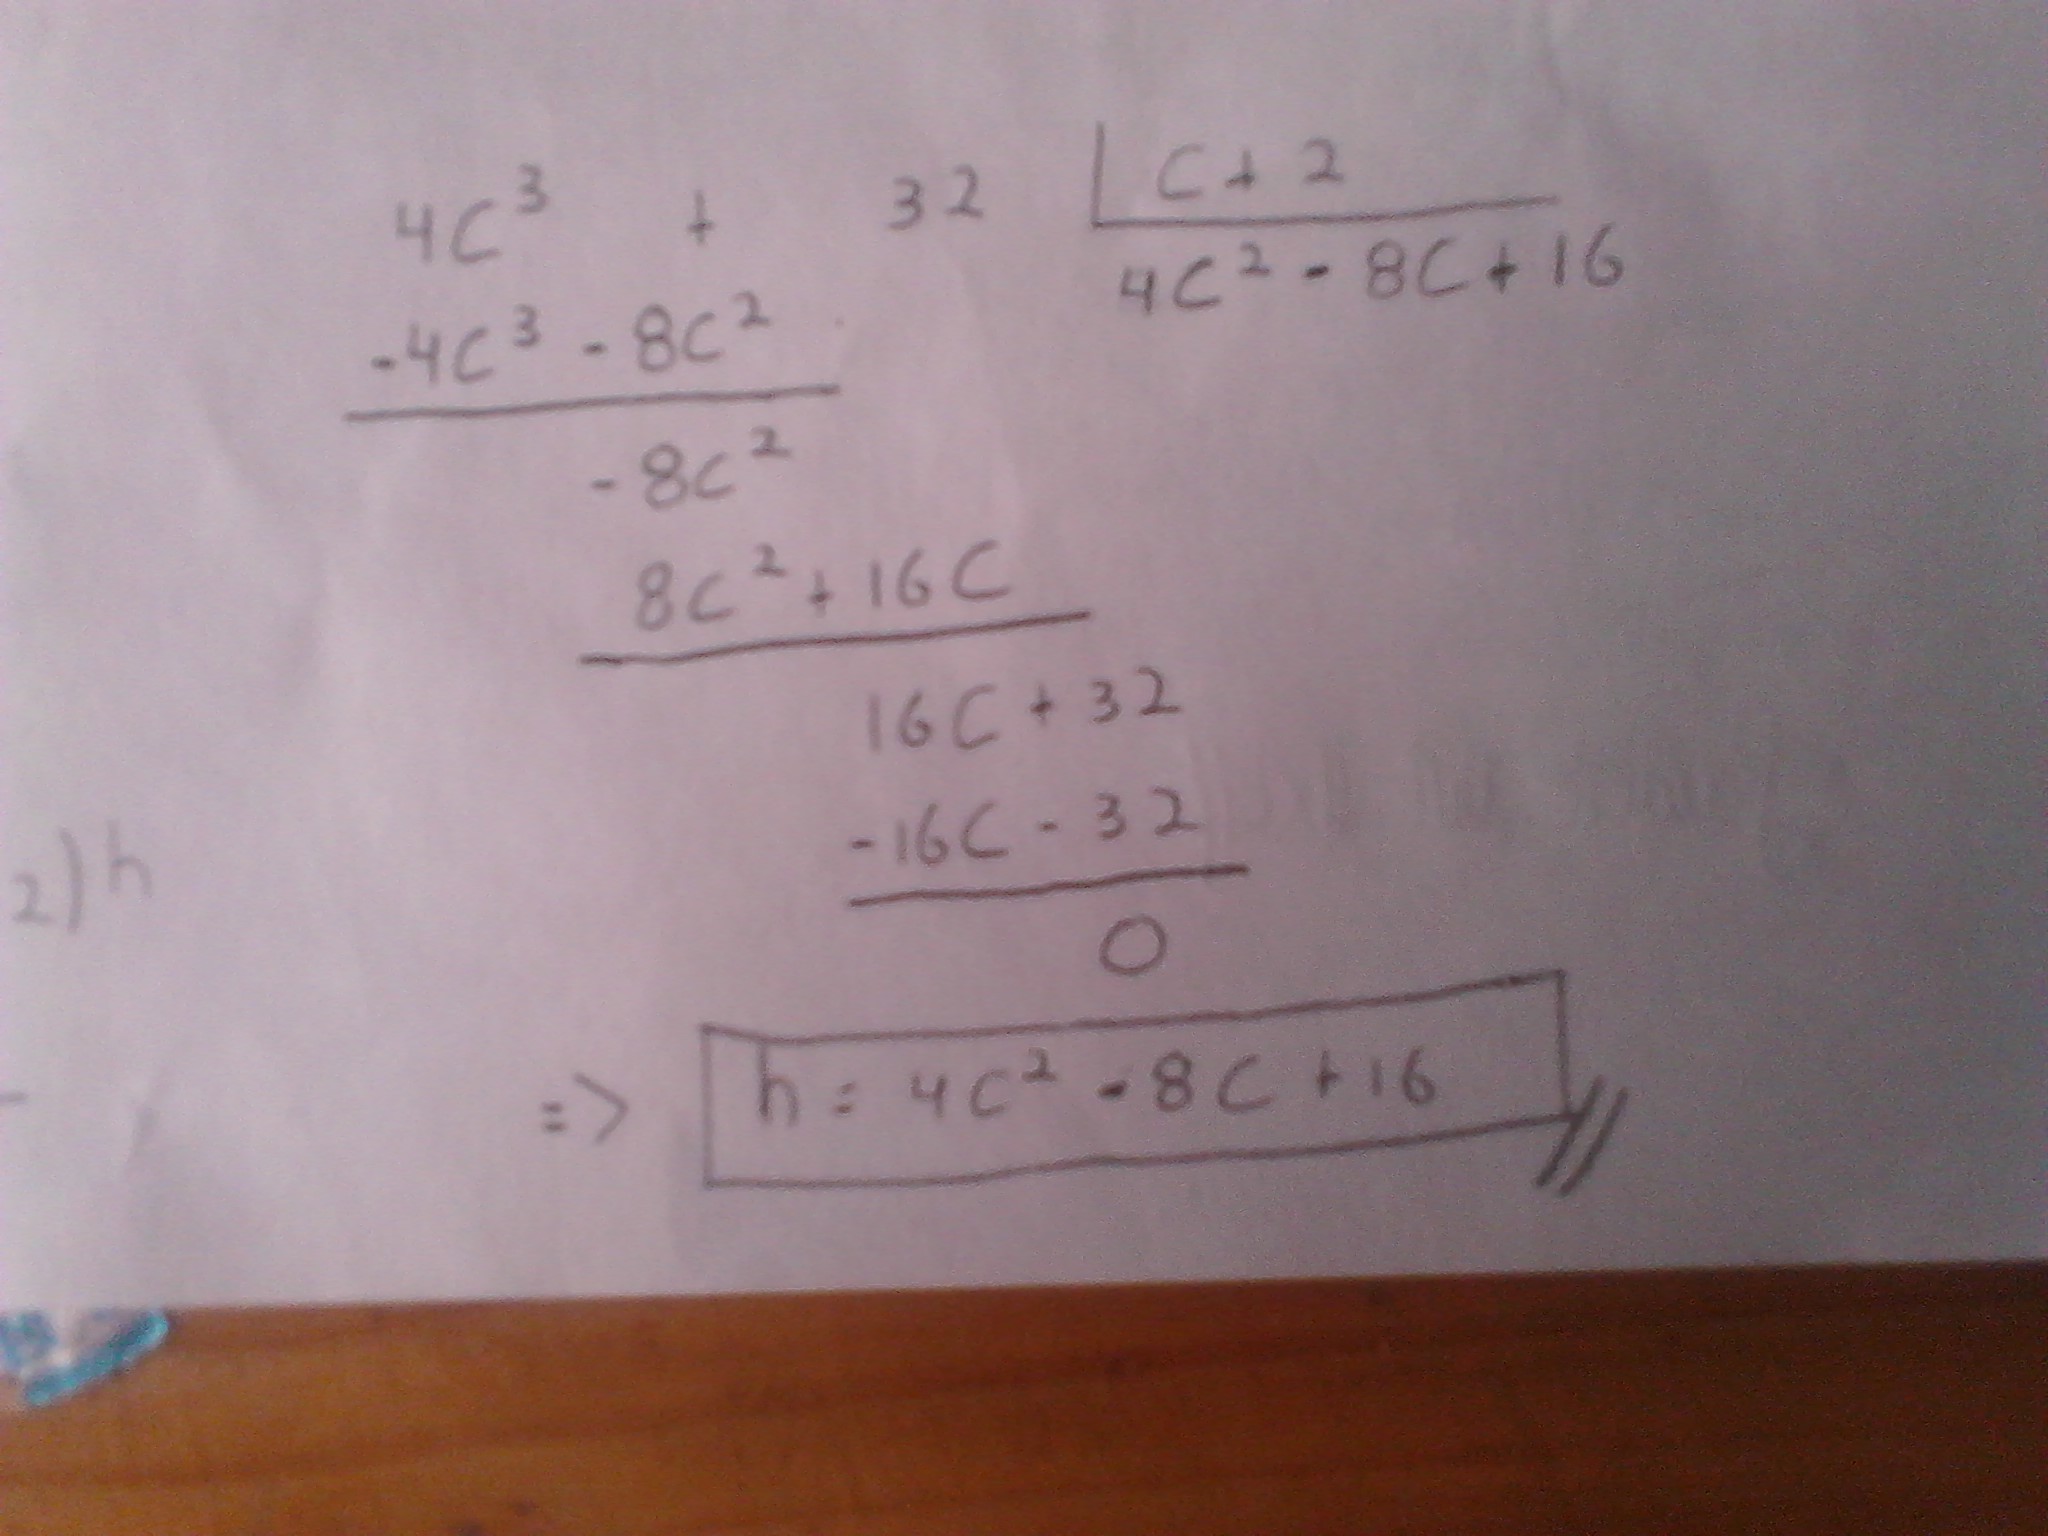 4C³ + 32 | C + 2
4C² - 8C + 16
-4C³ - 8C²
-8C²
8C² + 16C
16C + 32
-16C - 32
2) h
0
=> h = 4C² - 8C + 16 //